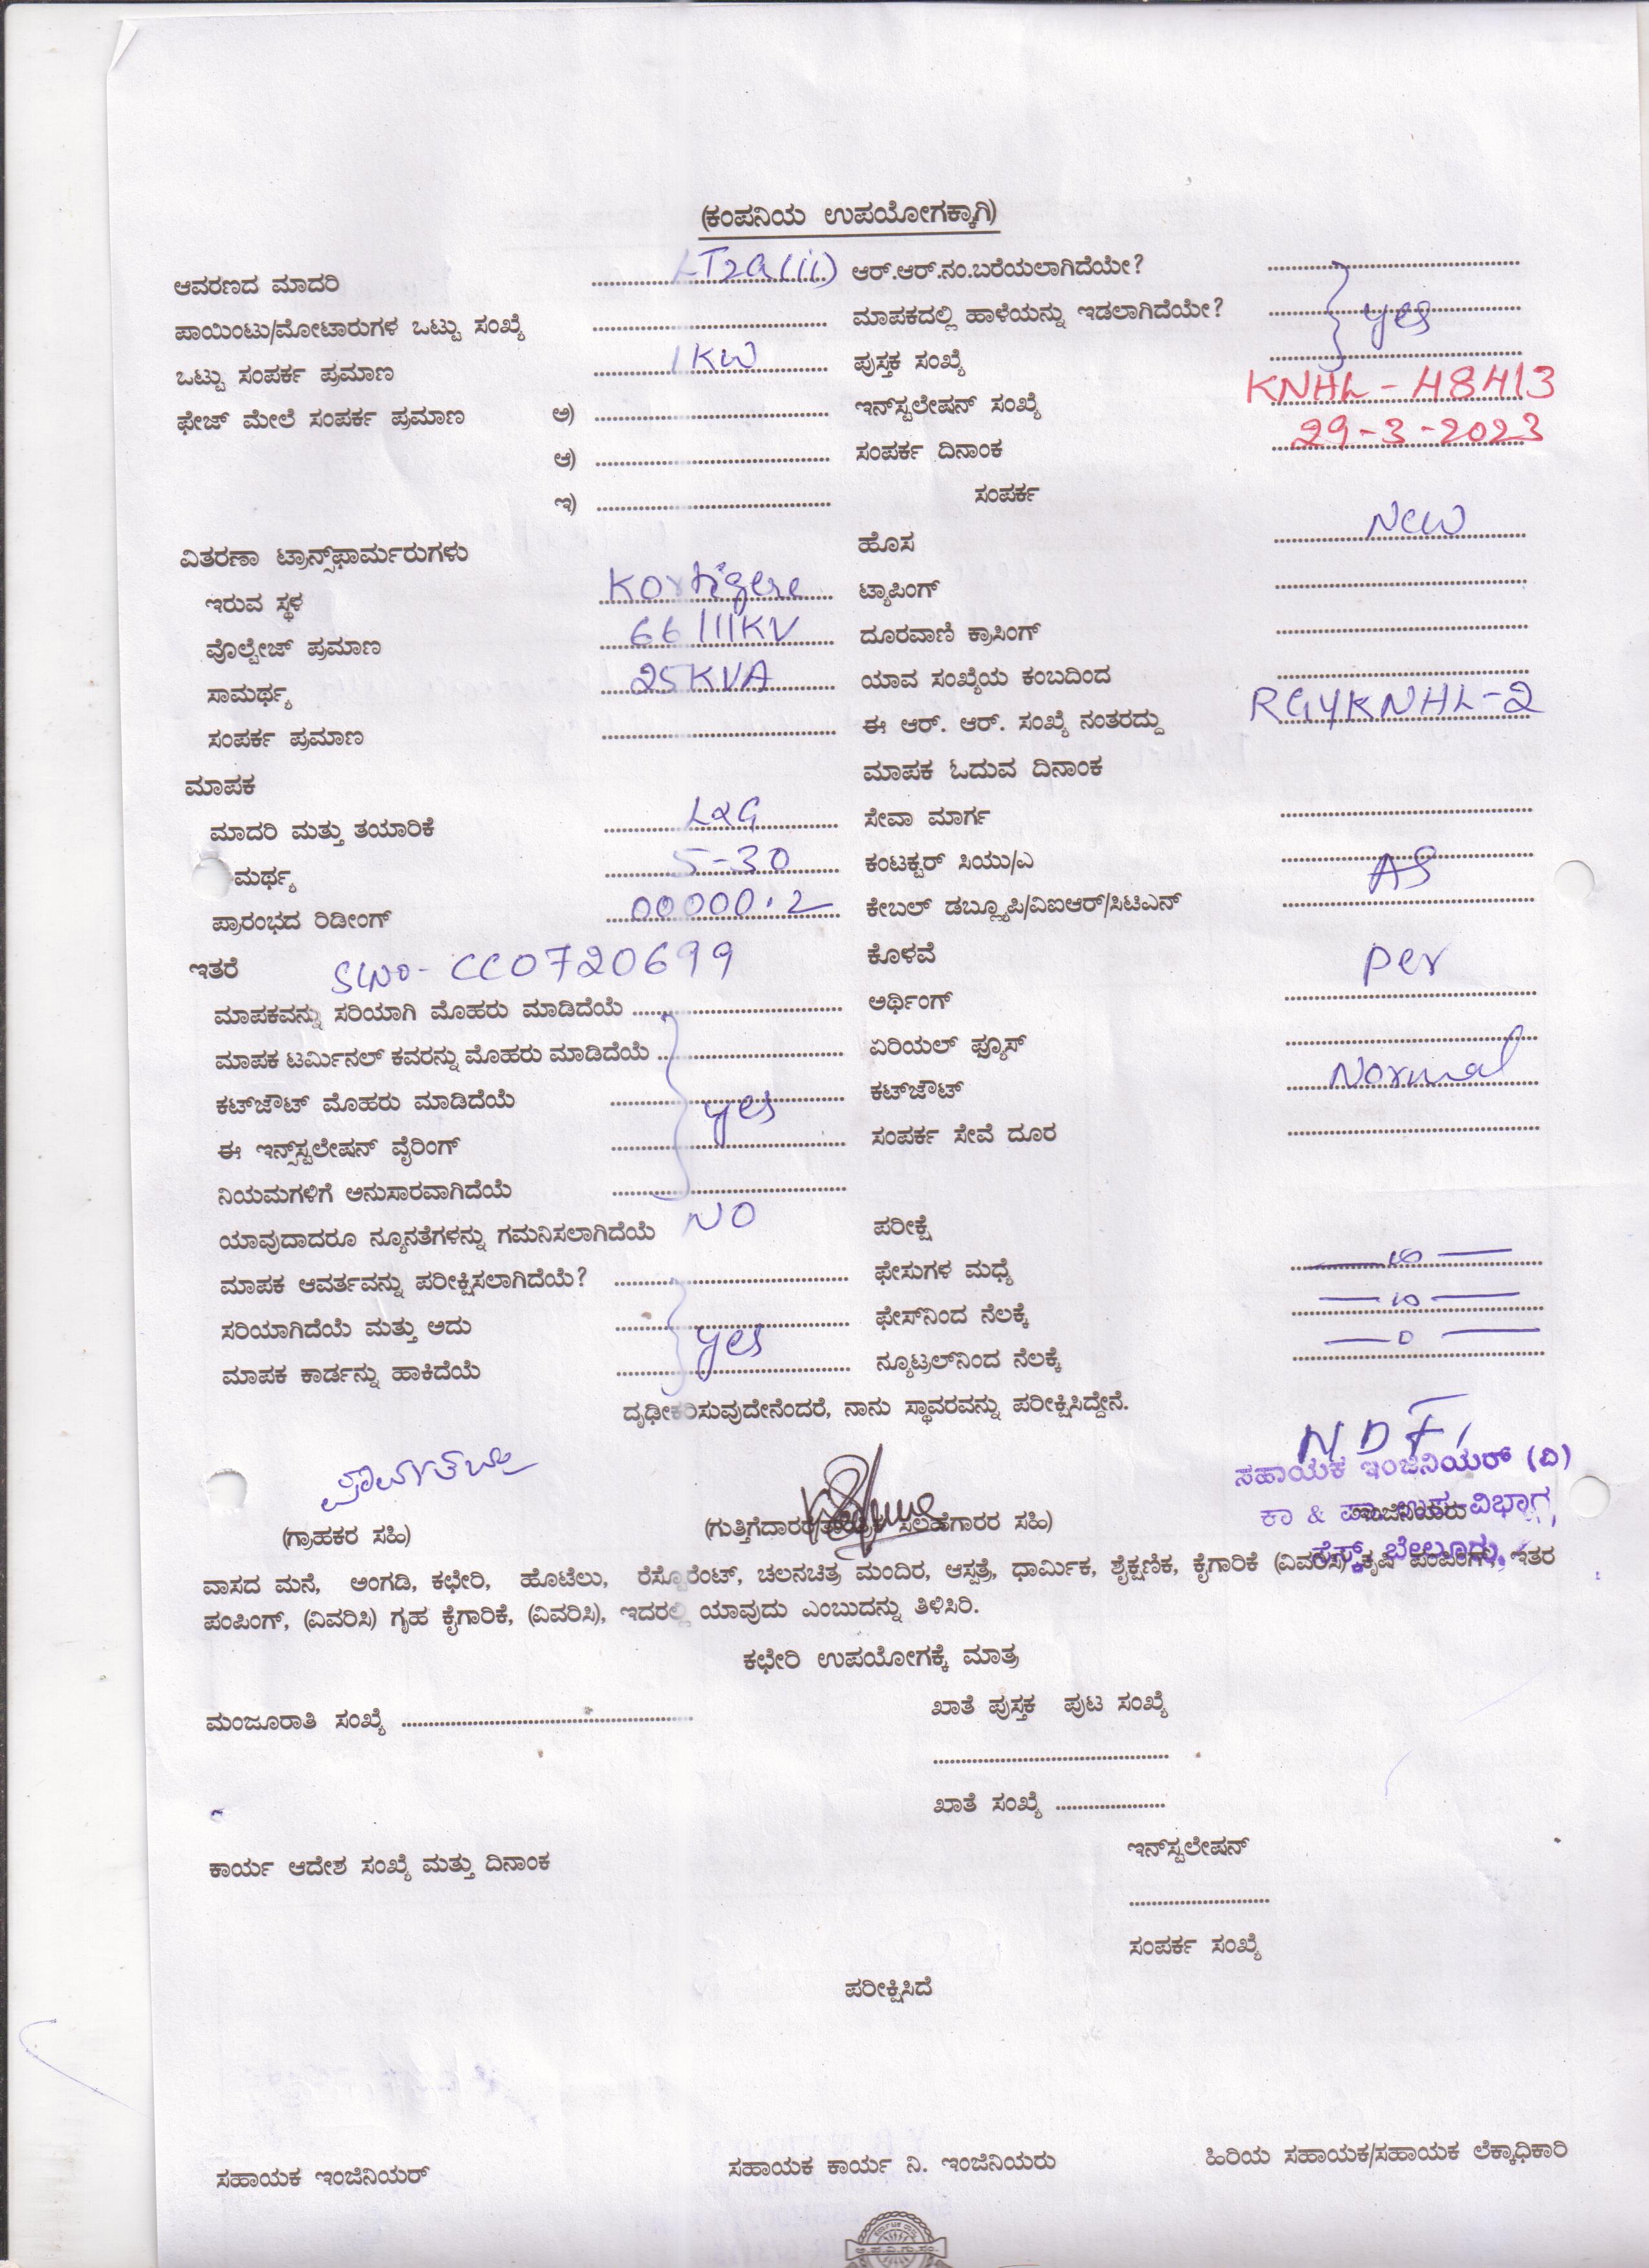 (ಕಂಪನಿಯ ಉಪಯೋಗಕ್ಕಾಗಿ)
ಆವರಣದ ಮಾದರಿ LT2a(ii) ಆರ್.ಆರ್.ನಂ.ಬರೆಯಲಾಗಿದೆಯೇ?
ಪಾಯಿಂಟು/ಮೋಟಾರುಗಳ ಒಟ್ಟು ಸಂಖ್ಯೆ ಮಾಪಕದಲ್ಲಿ ಹಾಳೆಯನ್ನು ಇಡಲಾಗಿದೆಯೇ? yes
ಒಟ್ಟು ಸಂಪರ್ಕ ಪ್ರಮಾಣ 1KW ಪುಸ್ತಕ ಸಂಖ್ಯೆ
ಫೇಜ್ ಮೇಲೆ ಸಂಪರ್ಕ ಪ್ರಮಾಣ ಅ) ಇನ್‌ಸ್ಟಲೇಷನ್ ಸಂಖ್ಯೆ KNHL-48413
ಆ) ಸಂಪರ್ಕ ದಿನಾಂಕ 29-3-2023
ಇ) ಸಂಪರ್ಕ
ವಿತರಣಾ ಟ್ರಾನ್ಸ್‌ಫಾರ್ಮರುಗಳು ಹೊಸ New
ಇರುವ ಸ್ಥಳ Kortigere ಟ್ಯಾಪಿಂಗ್
ವೊಲ್ಟೇಜ್ ಪ್ರಮಾಣ 66/11KV ದೂರವಾಣಿ ಕ್ರಾಸಿಂಗ್
ಸಾಮರ್ಥ್ಯ 25KVA ಯಾವ ಸಂಖ್ಯೆಯ ಕಂಬದಿಂದ
ಸಂಪರ್ಕ ಪ್ರಮಾಣ ಈ ಆರ್. ಆರ್. ಸಂಖ್ಯೆ ನಂತರದ್ದು RGYKNHL-2
ಮಾಪಕ ಮಾಪಕ ಓದುವ ದಿನಾಂಕ
ಮಾದರಿ ಮತ್ತು ತಯಾರಿಕೆ L&G ಸೇವಾ ಮಾರ್ಗ
ಮರ್ಥ್ಯ 5-30 ಕಂಟಕ್ಟರ್ ಸಿಯು/ಎ
ಪ್ರಾರಂಭದ ರಿಡೀಂಗ್ 00000.2 ಕೇಬಲ್ ಡಬ್ಲ್ಯೂಪಿ/ವಿಐಆರ್/ಸಿಟಿಎನ್ AS
ಇತರೆ Slno- CC0720699 ಕೊಳವೆ per
ಮಾಪಕವನ್ನು ಸರಿಯಾಗಿ ಮೊಹರು ಮಾಡಿದೆಯೆ ಅರ್ಥಿಂಗ್
ಮಾಪಕ ಟರ್ಮಿನಲ್ ಕವರನ್ನು ಮೊಹರು ಮಾಡಿದೆಯೆ ಏರಿಯಲ್ ಫ್ಯೂಸ್
ಕಟ್‌ಜೌಟ್ ಮೊಹರು ಮಾಡಿದೆಯೆ yes ಕಟ್‌ಜೌಟ್ Normal
ಈ ಇನ್ಸ್‌ಸ್ಟಲೇಷನ್ ವೈರಿಂಗ್ ಸಂಪರ್ಕ ಸೇವೆ ದೂರ
ನಿಯಮಗಳಿಗೆ ಅನುಸಾರವಾಗಿದೆಯೆ
ಯಾವುದಾದರೂ ನ್ಯೂನತೆಗಳನ್ನು ಗಮನಿಸಲಾಗಿದೆಯೆ NO ಪರೀಕ್ಷೆ
ಮಾಪಕ ಆವರ್ತವನ್ನು ಪರೀಕ್ಷಿಸಲಾಗಿದೆಯೆ? ಫೇಸುಗಳ ಮಧ್ಯೆ
ಸರಿಯಾಗಿದೆಯೆ ಮತ್ತು ಅದು yes ಫೇಸ್‌ನಿಂದ ನೆಲಕ್ಕೆ
ಮಾಪಕ ಕಾರ್ಡನ್ನು ಹಾಕಿದೆಯೆ ನ್ಯೂಟ್ರಲ್‌ನಿಂದ ನೆಲಕ್ಕೆ —0—
ದೃಢೀಕರಿಸುವುದೇನೆಂದರೆ, ನಾನು ಸ್ಥಾವರವನ್ನು ಪರೀಕ್ಷಿಸಿದ್ದೇನೆ.
ಸಹಾಯಕ ಇಂಜಿನಿಯರ್ (ವಿ)
ಕಾ & ಪಾ ಉಪ-ವಿಭಾಗ
(ಗ್ರಾಹಕರ ಸಹಿ) (ಗುತ್ತಿಗೆದಾರರ ಸಲಹೆಗಾರರ ಸಹಿ) ಇಂಜಿನಿಯರು
ಸೆಸ್ಕ್, ಬೇಲೂರು.
ವಾಸದ ಮನೆ, ಅಂಗಡಿ, ಕಛೇರಿ, ಹೊಟೆಲು, ರೆಸ್ಟೊರೆಂಟ್, ಚಲನಚಿತ್ರ ಮಂದಿರ, ಆಸ್ಪತ್ರೆ, ಧಾರ್ಮಿಕ, ಶೈಕ್ಷಣಿಕ, ಕೈಗಾರಿಕೆ (ವಿವರಿಸಿ) ಕೃಷಿ ಪಂಪಿಂಗ್, ಇತರ
ಪಂಪಿಂಗ್, (ವಿವರಿಸಿ) ಗೃಹ ಕೈಗಾರಿಕೆ, (ವಿವರಿಸಿ), ಇದರಲ್ಲಿ ಯಾವುದು ಎಂಬುದನ್ನು ತಿಳಿಸಿರಿ.
ಕಛೇರಿ ಉಪಯೋಗಕ್ಕೆ ಮಾತ್ರ
ಮಂಜೂರಾತಿ ಸಂಖ್ಯೆ ಖಾತೆ ಪುಸ್ತಕ ಪುಟ ಸಂಖ್ಯೆ
ಖಾತೆ ಸಂಖ್ಯೆ
ಇನ್‌ಸ್ಟಲೇಷನ್
ಕಾರ್ಯ ಆದೇಶ ಸಂಖ್ಯೆ ಮತ್ತು ದಿನಾಂಕ
ಸಂಪರ್ಕ ಸಂಖ್ಯೆ
ಪರೀಕ್ಷಿಸಿದೆ
ಸಹಾಯಕ ಇಂಜಿನಿಯರ್ ಸಹಾಯಕ ಕಾರ್ಯ ನಿ. ಇಂಜಿನಿಯರು ಹಿರಿಯ ಸಹಾಯಕ/ಸಹಾಯಕ ಲೆಕ್ಕಾಧಿಕಾರಿ